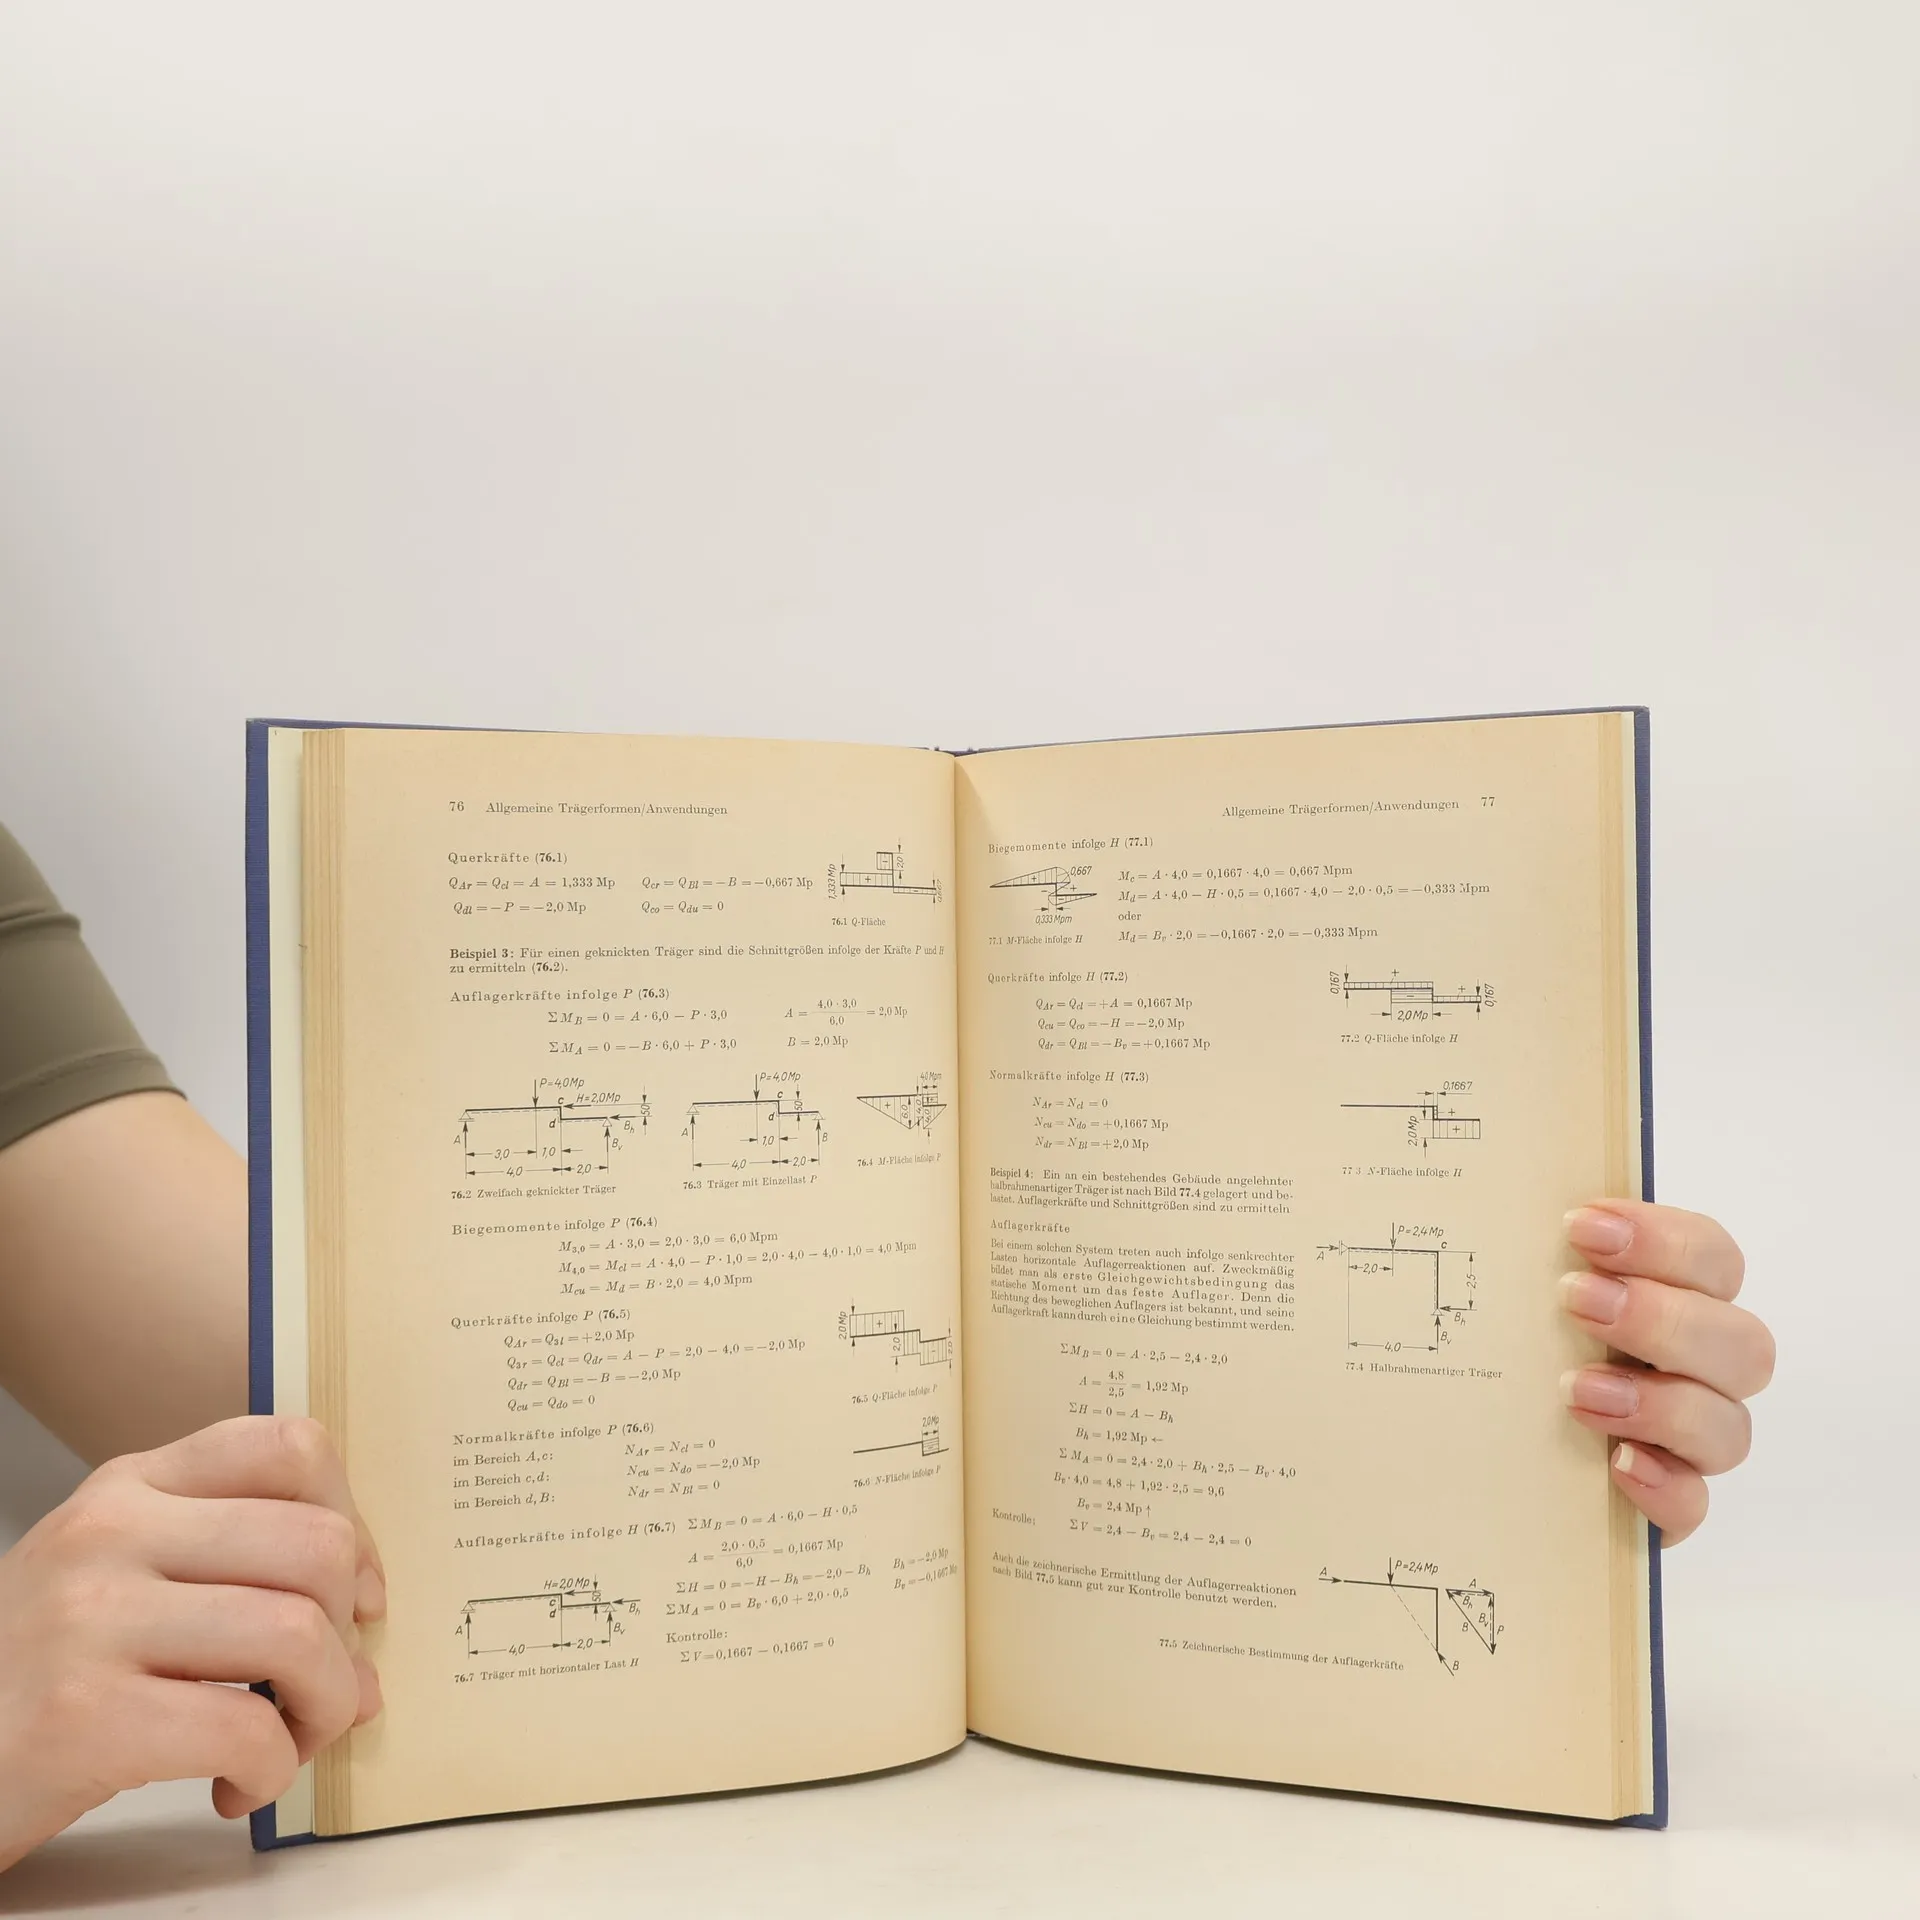 76 Allgemeine Trägerformen/Anwendungen
Querkräfte (76.1)
Q_Ar = Q_cl = A = 1,333 Mp Q_cr = Q_Bl = −B = −0,667 Mp
Q_dl = −P = −2,0 Mp Q_co = Q_du = 0
1,333 Mp
+
−
2,0
0,667
76.1 Q-Fläche
Beispiel 3: Für einen geknickten Träger sind die Schnittgrößen infolge der Kräfte P und H
zu ermitteln (76.2).
Auflagerkräfte infolge P (76.3)
ΣM_B = 0 = A · 6,0 − P · 3,0 A = 4,0 · 3,0 / 6,0 = 2,0 Mp
ΣM_A = 0 = −B · 6,0 + P · 3,0 B = 2,0 Mp
P=4,0Mp
c H=2,0Mp
d
50
A
B_h
B_v
3,0 1,0
4,0 2,0
76.2 Zweifach geknickter Träger
P=4,0Mp
c
d
50
A
B
1,0
4,0 2,0
76.3 Träger mit Einzellast P
4,0 Mpm
+
6,0
4,0
4,0
76.4 M-Fläche infolge P
Biegemomente infolge P (76.4)
M_3,0 = A · 3,0 = 2,0 · 3,0 = 6,0 Mpm
M_4,0 = M_cl = A · 4,0 − P · 1,0 = 2,0 · 4,0 − 4,0 · 1,0 = 4,0 Mpm
M_cu = M_d = B · 2,0 = 4,0 Mpm
Querkräfte infolge P (76.5)
Q_Ar = Q_3l = +2,0 Mp
Q_3r = Q_cl = Q_dr = A − P = 2,0 − 4,0 = −2,0 Mp
Q_dr = Q_Bl = −B = −2,0 Mp
Q_cu = Q_do = 0
2,0 Mp
+
2,0
−
2,0
76.5 Q-Fläche infolge P
Normalkräfte infolge P (76.6)
im Bereich A, c: N_Ar = N_cl = 0
im Bereich c, d: N_cu = N_do = −2,0 Mp
im Bereich d, B: N_dr = N_Bl = 0
2,0Mp
−
76.6 N-Fläche infolge P
Auflagerkräfte infolge H (76.7) ΣM_B = 0 = A · 6,0 − H · 0,5
A = 2,0 · 0,5 / 6,0 = 0,1667 Mp
ΣH = 0 = −H − B_h = −2,0 − B_h B_h = −2,0 Mp
ΣM_A = 0 = B_v · 6,0 + 2,0 · 0,5 B_v = −0,1667 Mp
Kontrolle:
ΣV = 0,1667 − 0,1667 = 0
H=2,0 Mp
c
d
50
A
B_h
B_v
4,0 2,0
76.7 Träger mit horizontaler Last H
Allgemeine Trägerformen/Anwendungen 77
Biegemomente infolge H (77.1)
0,667
+
−
0,333 Mpm
77.1 M-Fläche infolge H
M_c = A · 4,0 = 0,1667 · 4,0 = 0,667 Mpm
M_d = A · 4,0 − H · 0,5 = 0,1667 · 4,0 − 2,0 · 0,5 = −0,333 Mpm
oder
M_d = B_v · 2,0 = −0,1667 · 2,0 = −0,333 Mpm
Querkräfte infolge H (77.2)
Q_Ar = Q_cl = +A = 0,1667 Mp
Q_cu = Q_co = −H = −2,0 Mp
Q_dr = Q_Bl = −B_v = +0,1667 Mp
0,167
+
−
+
0,167
2,0 Mp
77.2 Q-Fläche infolge H
Normalkräfte infolge H (77.3)
N_Ar = N_cl = 0
N_cu = N_do = +0,1667 Mp
N_dr = N_Bl = +2,0 Mp
0,1667
+
2,0 Mp
+
77.3 N-Fläche infolge H
Beispiel 4: Ein an ein bestehendes Gebäude angelehnter
halbrahmenartiger Träger ist nach Bild 77.4 gelagert und be-
lastet. Auflagerkräfte und Schnittgrößen sind zu ermitteln
Auflagerkräfte
Bei einem solchen System treten auch infolge senkrechter
Lasten horizontale Auflagerreaktionen auf. Zweckmäßig
bildet man als erste Gleichgewichtsbedingung das
statische Moment um das feste Auflager. Denn die
Richtung des beweglichen Auflagers ist bekannt, und seine
Auflagerkraft kann durch eine Gleichung bestimmt werden.
P=2,4 Mp
c
A
2,0
2,5
B_h
B_v
4,0
77.4 Halbrahmenartiger Träger
ΣM_B = 0 = A · 2,5 − 2,4 · 2,0
A = 4,8 / 2,5 = 1,92 Mp
ΣH = 0 = A − B_h
B_h = 1,92 Mp ←
ΣM_A = 0 = 2,4 · 2,0 + B_h · 2,5 − B_v · 4,0
B_v · 4,0 = 4,8 + 1,92 · 2,5 = 9,6
B_v = 2,4 Mp ↑
Kontrolle: ΣV = 2,4 − B_v = 2,4 − 2,4 = 0
Auch die zeichnerische Ermittlung der Auflagerreaktionen
nach Bild 77.5 kann gut zur Kontrolle benutzt werden.
A
P=2,4 Mp
B
A
B_h
B_v
B
P
77.5 Zeichnerische Bestimmung der Auflagerkräfte